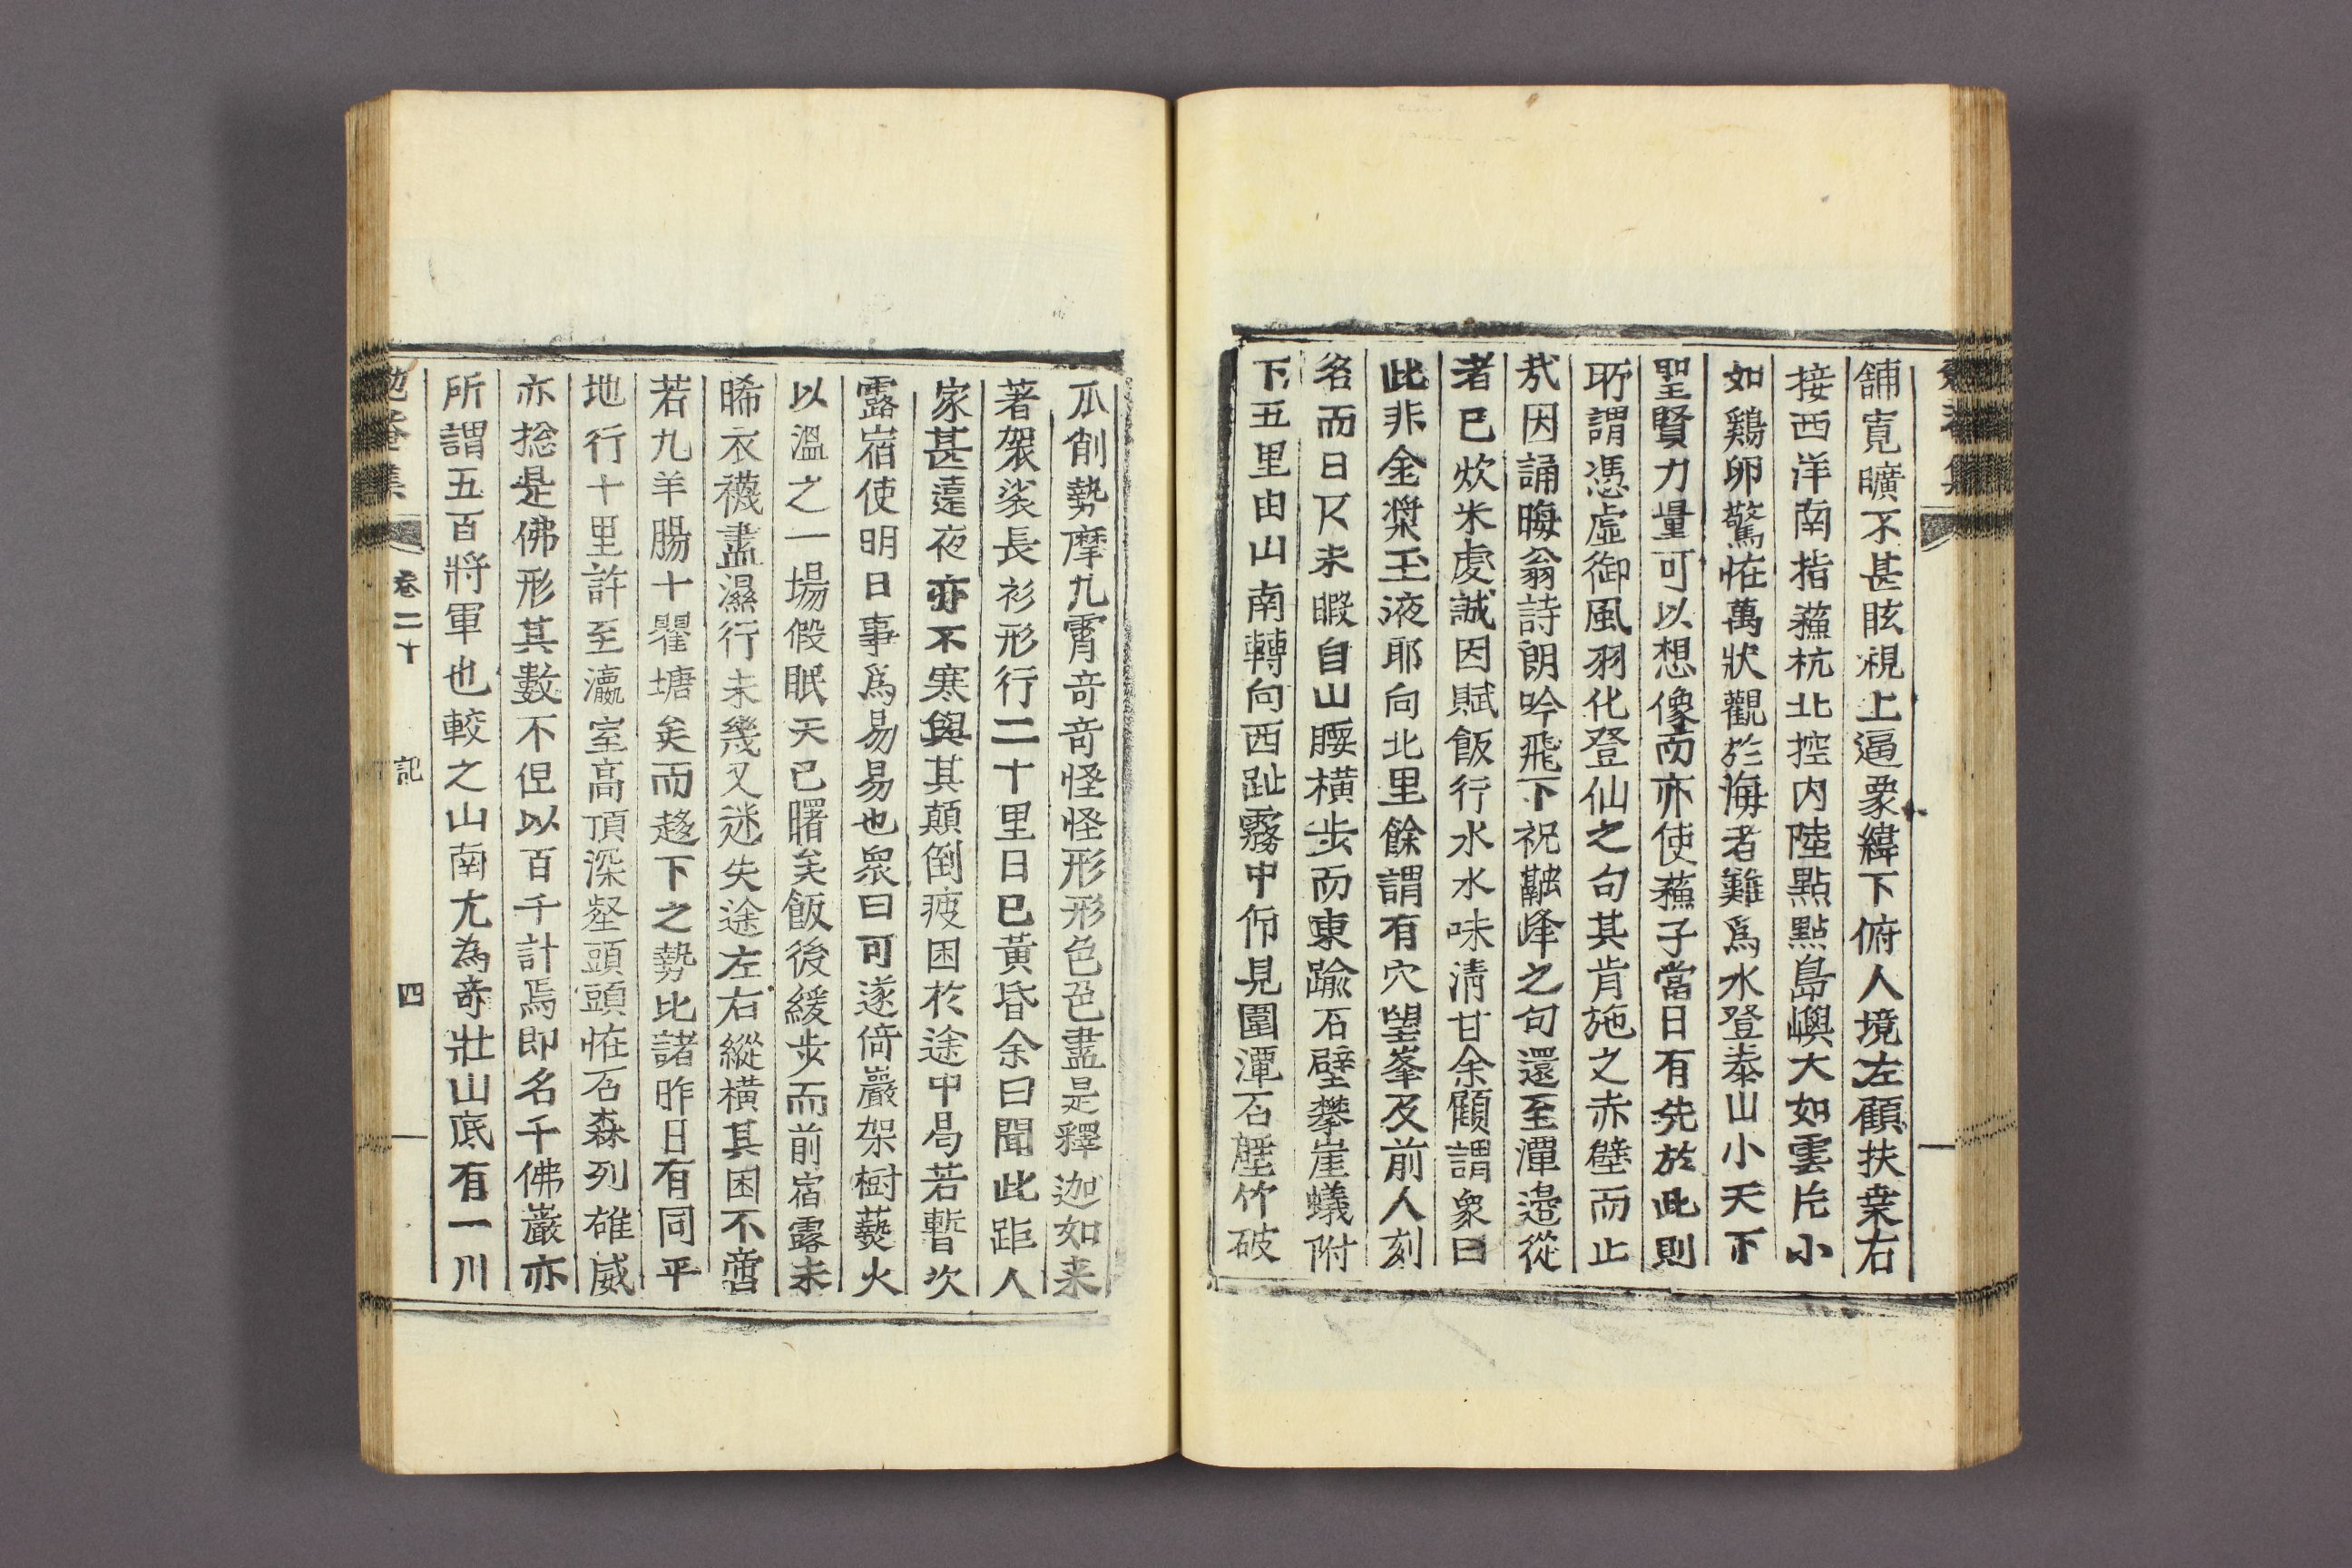 舖寬曠不甚眩視上逼象緯下俯人境左顧扶桒右
接西洋南指蘓杭北控内陸點點島嶼大如雲片小
如鷄卵驚恠萬狀觀於海者難爲水登泰山小天下
聖賢力量可以想像而亦使蘓子當日有先於此則
所謂憑虛御風羽化登仙之句其肯施之赤壁而止
㢤因誦晦翁詩朗吟飛下祝融峰之句還至潭邉從
者已炊米虔誠因賦飯行水水味淸甘余顧謂衆曰
此非金漿玉液耶向北里餘謂有穴望峯及前人刻
名而日下未暇自山腰横步而東踰石壁攀崖蟻附
下五里由山南轉向西趾霧中俯見圍潭石壁竹破
爪削勢摩九霄竒竒怪怪形形色色盡是釋迦如来
著袈裟長衫形行二十里日已黃昏余曰聞此距人
家甚遠夜亦不寒與其顚倒疲困於途中曷若暫次
露宿使明日事爲易易也衆曰可遂倚巖架樹爇火
以溫之一場假眠天已曙矣飯後緩步而前宿露未
晞衣襪盡濕行未幾又迷失途左右縱横其困不啻
若九羊腸十瞿塘矣而趍下之勢比諸昨日有同平
地行十里許至瀛室高頂深壑頭頭恠石森列雄威
亦捴是佛形其數不但以百千計焉即名千佛巖亦
所謂五百將軍也較之山南尤為竒壯山底有一川
勉菴集 卷二十 記 四